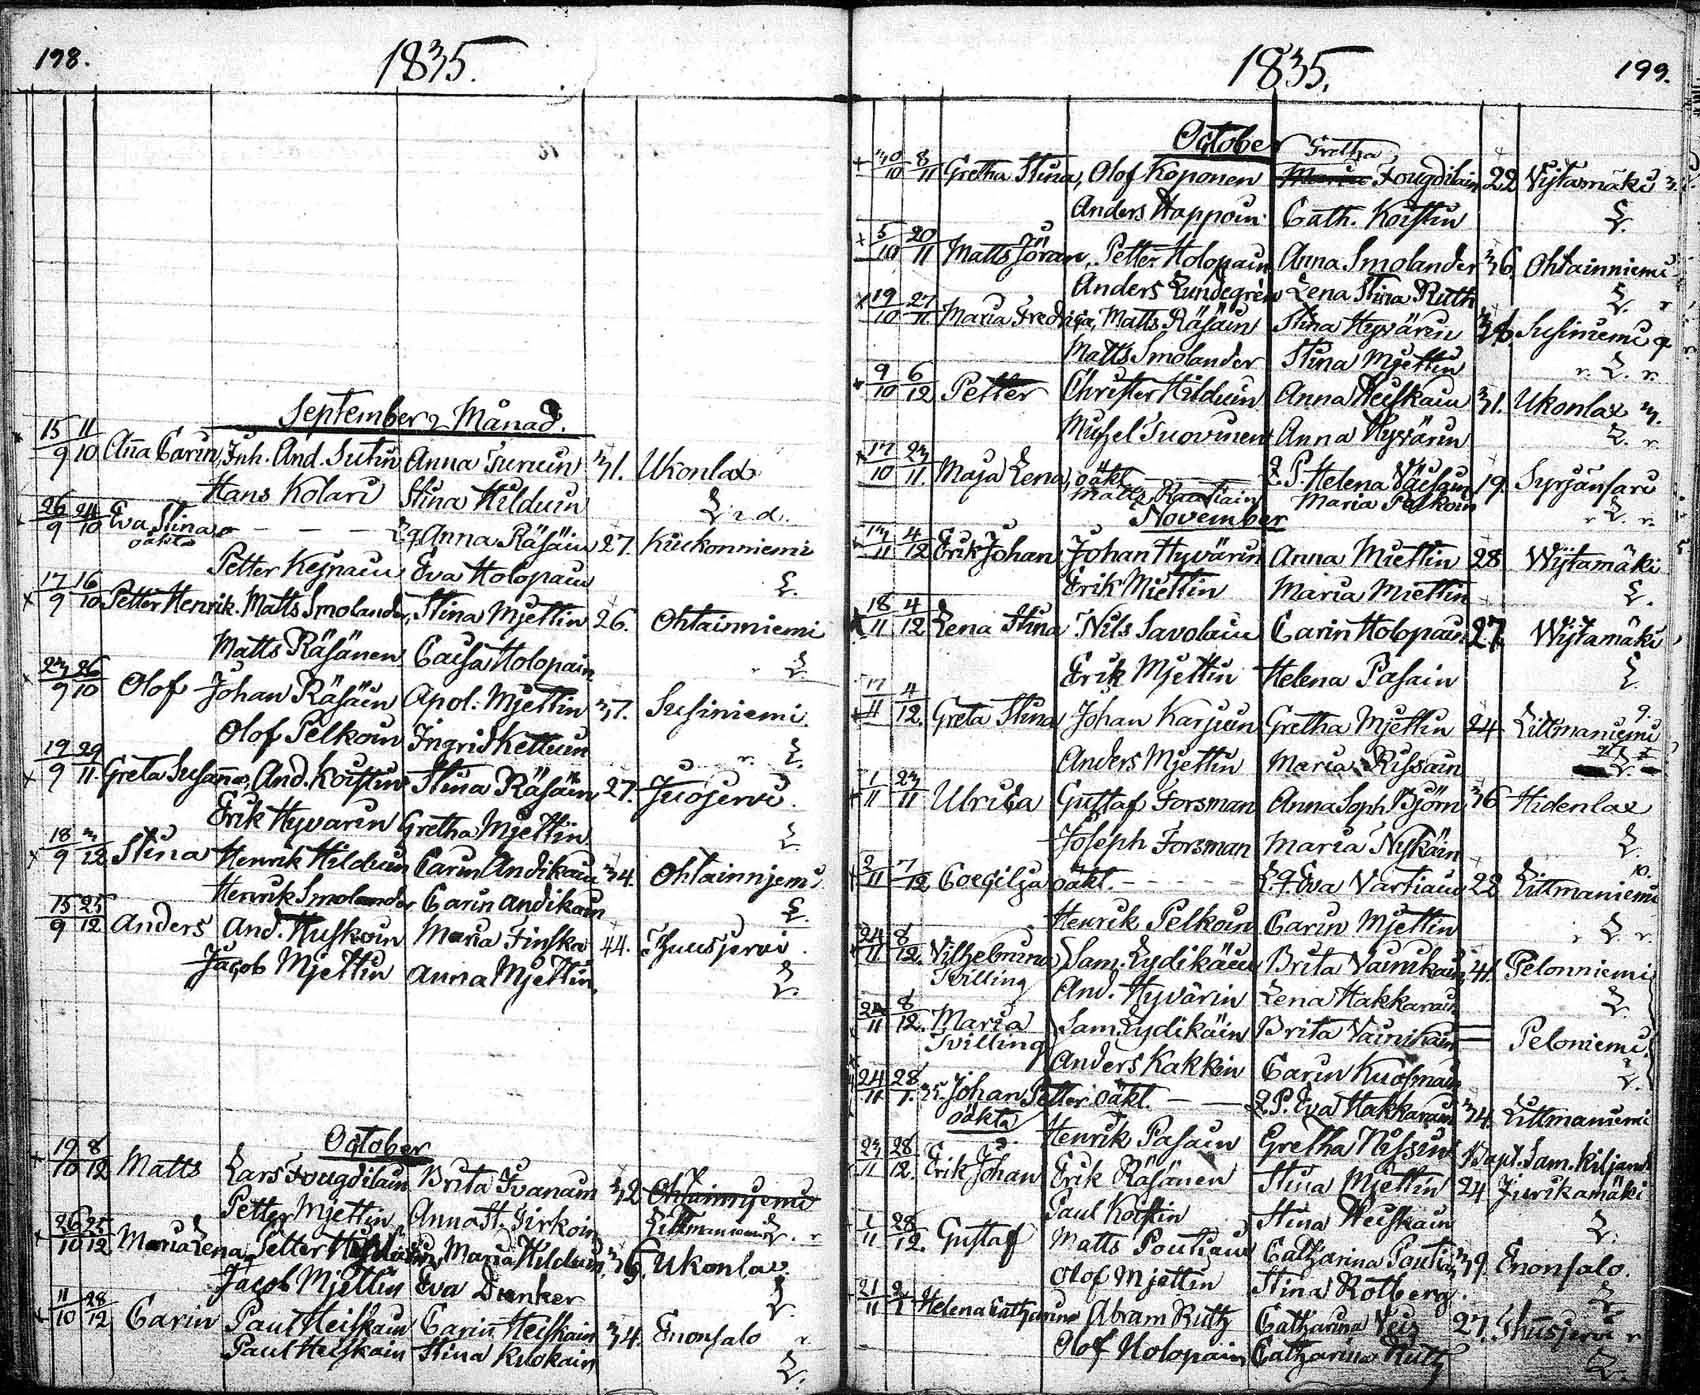 198.
1835.
September Månad.
15/9 11/10 Anna Carin, Inh. And. Sutin Anna Turuin 31. Ukonlax
Hans Kolari Stina Hilduin
26/9 24/10 Eva Stina oäkta — — — Anna Räsäin 27. Kiukonniemi
Petter Keinain Eva Holopain
17/9 16/10 Petter Henrik. Matts Smolander, Stina Mjettin 26. Ohtainniemi
Matts Räsänen Caisa Holopain
23/9 26/10 Olof Johan Räsäin Apol: Mjettin 37. Susiniemi
Olof Pelkoin Ingrid Kettuin
19/9 29/11 Greta Susanna, And. Koistin Stina Räsäin 27. Juojervi.
Erik Hyvarin Gretha Mjettin
18/9 3/12 Stina Henrik Hilduin Carin Andikain 34. Ohtainnjemi
Henrik Smolander Carin Andikain
15/9 25/12 Anders And. Huskoin Maria Finska 44. Thuusjervi.
Jacob Mjettin Anna Mjettin.
October
19/10 8/12 Matts Lars Fougdilain Brita Ivanain 32 Ohtainnjemi
Petter Mjettin Anna St. Jirkoin Littmaniemi
26/10 25/12 Maria Lena, Petter Maria Hilduin, 36. Ukonlax.
Jacob Mjettin Eva Dunker
11/10 28/12 Carin Paul Heiskain Carin Heiskain 34. Enonsalo
Paul Heiskain Stina Kuokain,
199.
1835.
October
30/10 8/11 Gretha Stina, Olof Koponen Gretha Maria Fougdilain 22 Vijtamäki
Anders Happoin Cath. Koistin
5/10 20/11 Matts Jöran, Petter Holopain Anna Smolander 36 Ohtainniemi
Anders Lundegren Lena Stina Ruth
19/10 27/11 Maria Fredrica, Matts Räsäin Stina Hyvärin Susiniemi
Matts Smolander Stina Mjettin
9/10 6/12 Petter Christer Hilduin Anna Heiskain 31. Ukonlax
Michel Suovinen Anna Hyvärin
17/10 23/11 Maja Lena, oäkt — — — Helena Väisäin 19. Syrjänsari
Matts Raatiain Maria Pelkoin
November
13/11 4/12 Erik Johan Johan Hyvärin Anna Miettin 28 Wijtamäki
Erik Miettin Maria Miettin
18/11 4/12 Lena Stina Nils Savolain Carin Holopain 27. Wijtamäki
Erik Mjettin Helena Pasain
17/11 4/12. Greta Stina, Johan Karjuin Gretha Mjettin 24 Littmaniemi
Anders Mjettin Maria Rissain
1/11 23/11 Ulrica Gustaf Forsman Anna Soph. Björn 36 Hidenlax
Joseph Forsman Maria Niskäin
2/11 7/12 Coecilja oäkt. — — — Eva Vartiain 22 Littmaniemi
Henrik Pelkoin Carin Mjettin
24/11 8/12. Vilhelmina Sam. Lydikäin Brita Vainikain 41. Pelonniemi
Tvilling And. Hyvärin Lena Hakkarain
24/11 8/12. Maria Sam. Lydikäin Brita Vainikain = Peloniemi.
Tvilling Anders Kakkin Carin Kuosmain
24/11 28/1. 35. Johan Petter oäkt. — — Eva Hakkarain 34. Littmaniemi
oäkta Henrik Pasain Gretha Nissin Bapt. Sam. Kiljand.
23/11 28/12. Erik Johan Erik Räsänen Stina Mjettin 24 Jurikamäki
Paul Koistin Stina Heiskain
1/11 28/12. Gustaf Matts Poutiain Catharina Poutiain 39. Enonsalo.
Olof Mjettin Stina Rotberg.
21/11 2/1 Helena Catharina Abram Rutz Catharina Veiz 27. Thusjervi
Olof Holopain Catharina Rutz